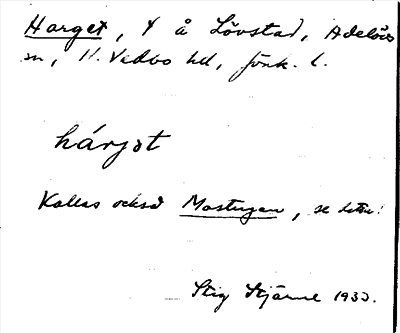 Harget, Y å Lövstad, Adelövs
sn, N. Vedbo hd, Jönk. l.
hárjət
Kallas också Mostugan, se detta!
Stig Stjärne 1933.